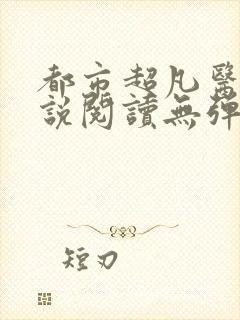 都市超凡醫
說閱讀無彈
短刃